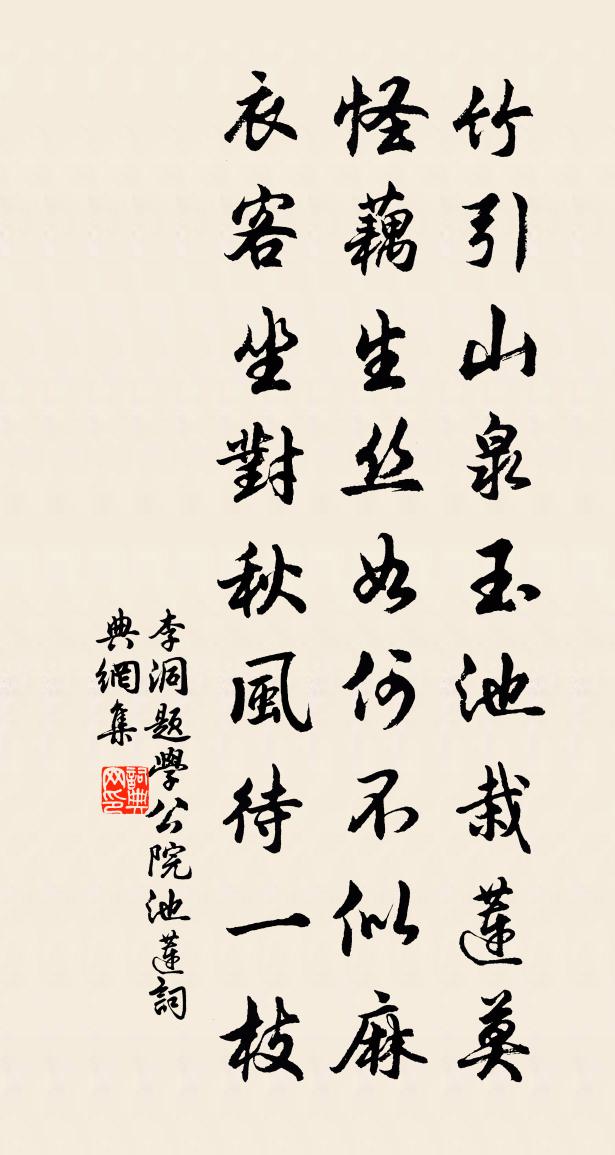 竹引山泉玉池栽蓮莫
怪藕生丝如何不似麻
衣客坐對秋風待一枝
李洞題學公院池蓮詞
典網集
詞典网印